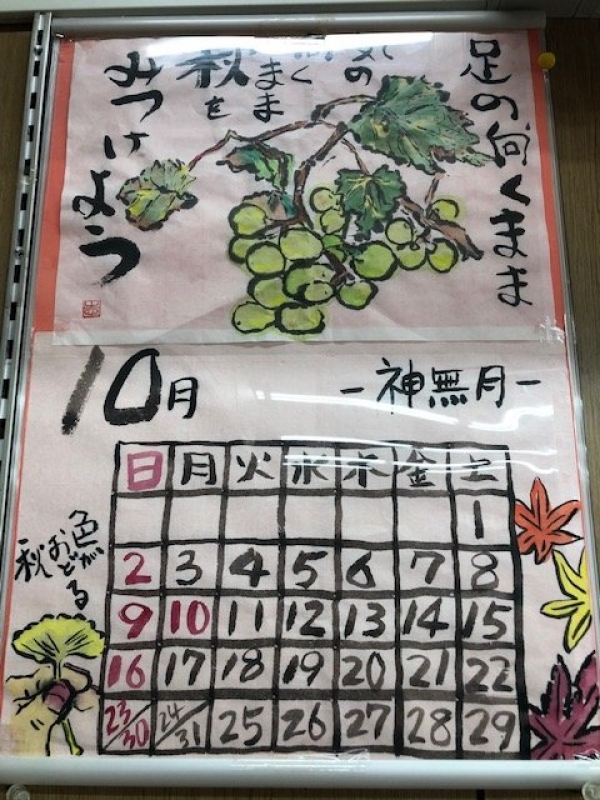 足の向くまま
気の
向く
まま
秋を
みつけよう
10月
-神無月-
日 月 火 水 木 金 土
1
2 3 4 5 6 7 8
9 10 11 12 13 14 15
16 17 18 19 20 21 22
23/30 24/31 25 26 27 28 29
色
おどがる
秋